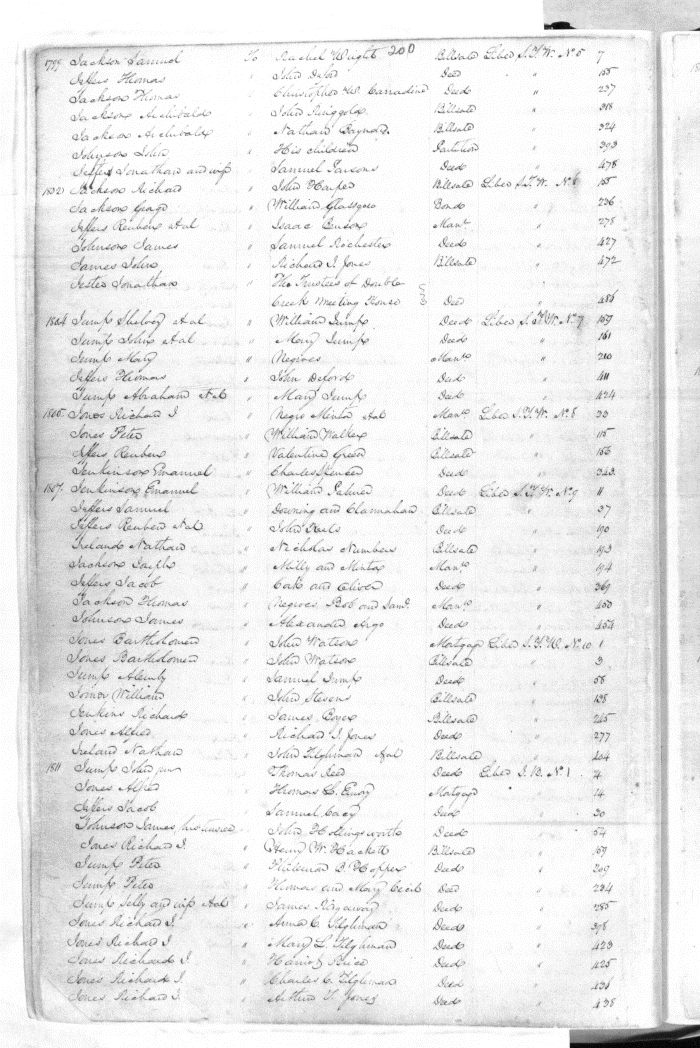 200
1799 Jackson Samuel To Rachel Wright Billsale Liber S.T.W. No 5 7
Jeffers Thomas " John Deford Deed " 155
Jackson Thomas " Christopher W. Carradine Deed " 237
Jackson Archibald " John Ringgold Billsale " 318
Jackson Archibald " Nathan Baynard Billsale " 324
Johnson John " His children Partition " 393
Jeffers Jonathan and wife " Samuel Parsons Deed " 478
1802 Jackson Richard " John Harper Billsale Liber S.T.W. No 155
Jackson " William Glassgow Bond " 236
Jeffers Reuben & al " Isaac Manr " 278
Johnson James " Samuel Rochester Deed " 427
James John " Richard I. Jones Billsale " 472
Jester Jonathan " The Trustees of Double
Creek Meeting House Deed " 486
1804 Jump Shelvey & al " William Jump Deed Liber S.T.W. No 7 159
Jump John & al " Mary Jump Deed " 161
Jump Mary " Negroes Manr " 210
Jeffers Thomas " John Deford Deed " 411
Jump Abraham & al " Mary Jump Deed " 424
1805 Jones Richard I " Negro Minta & al Manr Liber S.T.W. No 8 33
Jones Peter " William Walker Billsale " 115
Jeffers Reuben " Valentine Green Billsale " 156
Jenkinson Emanuel " Charles Spencer Deed " 343
1807 Jenkinson Emanuel " William Palmer Deed Liber S.T.W. No 9 11
Jeffers Samuel " Downing and Clannahan Billsale " 37
Jeffers Reuben & al " John Deed " 190
Ireland Nathan " Nicholas Numbers Billsale " 193
Jackson Joseph " Milly and Minta Manr " 194
Jeffers Jacob " Cato and Oliver Deed " 369
Jackson Thomas " Negroes Bob and Sam Manr " 450
Johnson James " Alexander Argo Deed " 454
Jones Bartholomew " John Watson Mortgage Liber S.T.W. No 10 1
Jones Bartholomew " John Watson Billsale " 3
Jump Alemby " Samuel Jump Deed " 58
William " John Stevens Billsale " 138
Jenkins Richard " James Boyer Billsale " 245
Jones Alfred " Richard I. Jones Deed " 277
Ireland Nathan " John Tilghman & al Billsale " 404
1811 Jump John jun " Thomas Reed Deed Liber I.B. No 1 4
Jones Alfred " Thomas L. Emory Mortgage " 14
Jeffers Jacob " Samuel Cacy Deed " 30
Johnson James, " John Hollingsworth Deed " 54
Jones Richard I. " Henry W. Hackett Billsale " 159
Jump Peter " Philemon B. Hopper Deed " 209
Jump Peter " Thomas and Mary Cecil Deed " 224
Jump Selly and wife & al " James Ridgaway Deed " 285
Jones Richard I. " Anna C. Tilghman Deed " 398
Jones Richard I " Mary L. Tilghman Deed " 423
Jones Richard I. " Harriot Brice Deed " 425
Jones Richard I. " Charles C. Tilghman Deed " 436
Jones Richard I. " Arthur T. Jones Deed " 438